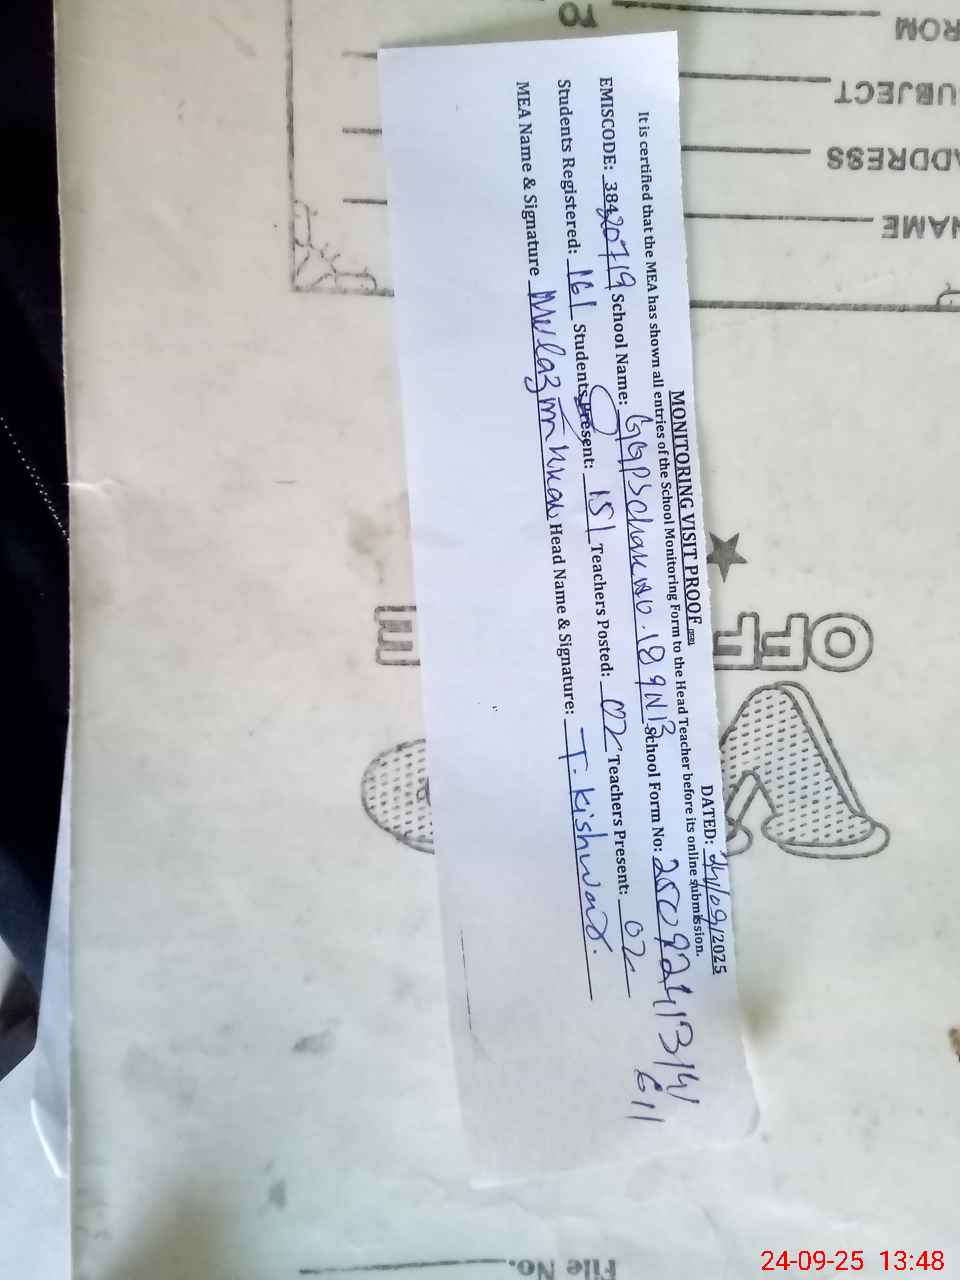 MONITORING VISIT PROOF
DATED: 24/09/2025
It is certified that the MEA has shown all entries of the School Monitoring Form to the Head Teacher before its online submission.
EMISCODE: 38420719 School Name: GGPS chak NO. 189NB School Form No: 25092413141 611
Students Registered: 161 Students Present: 151 Teachers Posted: 02 Teachers Present: 02
MEA Name & Signature Mulazim Head Name & Signature: T. Kishwar.
TO
FROM
SUBJECT
ADDRESS
NAME
OFF
File No.
24-09-25 13:48